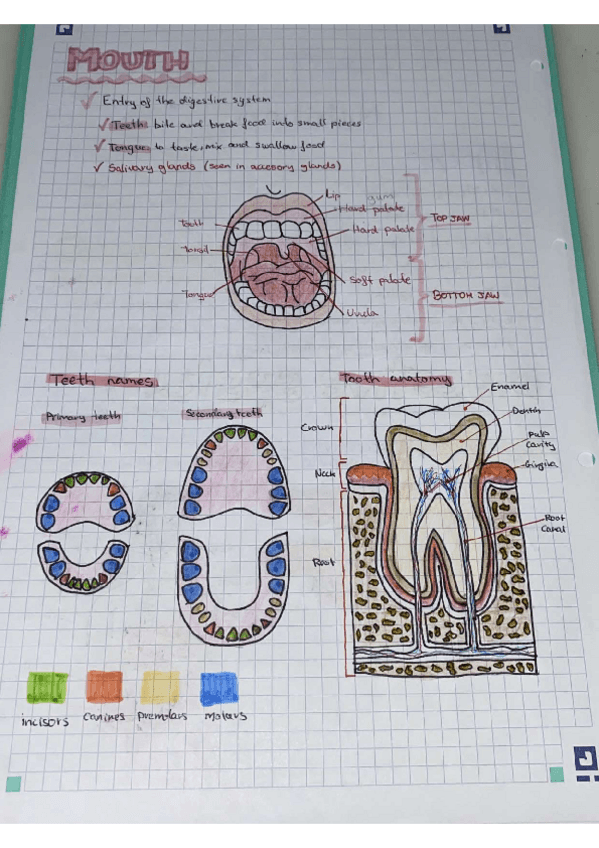 MOUTH
✓ Entry of the digestive system
✓ Teeth: bite and break food into small pieces
✓ Tongue: to taste, mix and swallow food
✓ Salivary glands (seen in accesory glands)
Lip
gums
Hard palate
Teeth
Hard palate
TOP JAW
Tonsil
Soft palate
Tongue
BOTTOM JAW
Uvula
Teeth names
Tooth anatomy
Primary teeth
Secondary teeth
Enamel
Dentin
Crown
Pulp
cavity
Neck
Gingiva
Root
canal
Root
incisors canines premolars molars